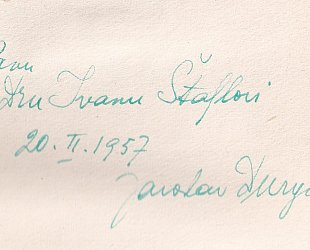 Panu
Dru Ivanu Štaflovi
20. II. 1957
Jaroslav Durych